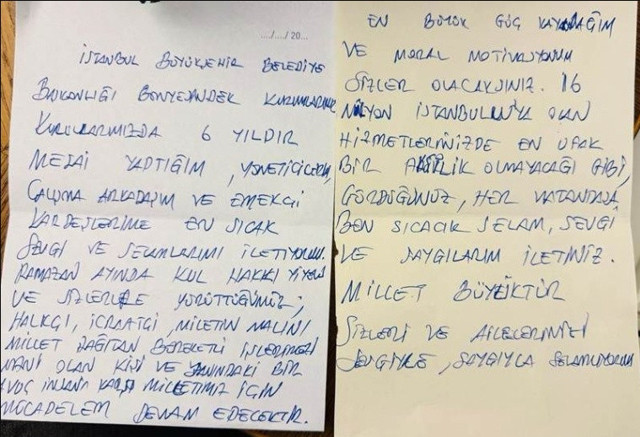 ..../..../ 20...
İSTANBUL BÜYÜKŞEHİR BELEDİYE
BAŞKANLIĞI BÜNYESİNDEK KURUMLARIMIZ
KURULLARIMIZDA 6 YILDIR
MESAİ YAPTIĞIM, YÖNETİCİLERİM,
ÇALIŞMA ARKADAŞIM VE EMEKÇİ
KARDEŞLERİME EN SICAK
SEVGİ VE SELAMLARIMI İLETİYORUM.
RAMAZAN AYINDA KUL HAKKI YİYEN
VE SİZLERLE YÜRÜTTÜĞÜMÜZ;
HALKÇI, İCRAATÇI, MİLLETİN MALINI
MİLLET DAĞITAN BEREKETLİ İŞLERİMİZE
MANİ OLAN KİŞİ VE YANINDAKİ BİR
AVUÇ İNSANA KARŞI MİLLETİMİZ İÇİN
MÜCADELEM DEVAM EDECEKTİR.
EN BÜYÜK GÜÇ KAYNAĞIM
VE MORAL MOTİVASYONUM
SİZLER OLACAKSINIZ. 16
MİLYON İSTANBULLUYA OLAN
HİZMETLERİNİZDE EN UFAK
BİR OLMAYACAĞI GİBİ,
GÖRDÜĞÜNÜZ, HER VATANDAŞA
BEN SICACIK SELAM, SEVGİ
VE SAYGILARIM İLETİNİZ.
MİLLET BÜYÜKTÜR
SİZLERİ VE AİLELERİNİZİ
SEVGİYLE, SAYGIYLA SELAMLIYORUM